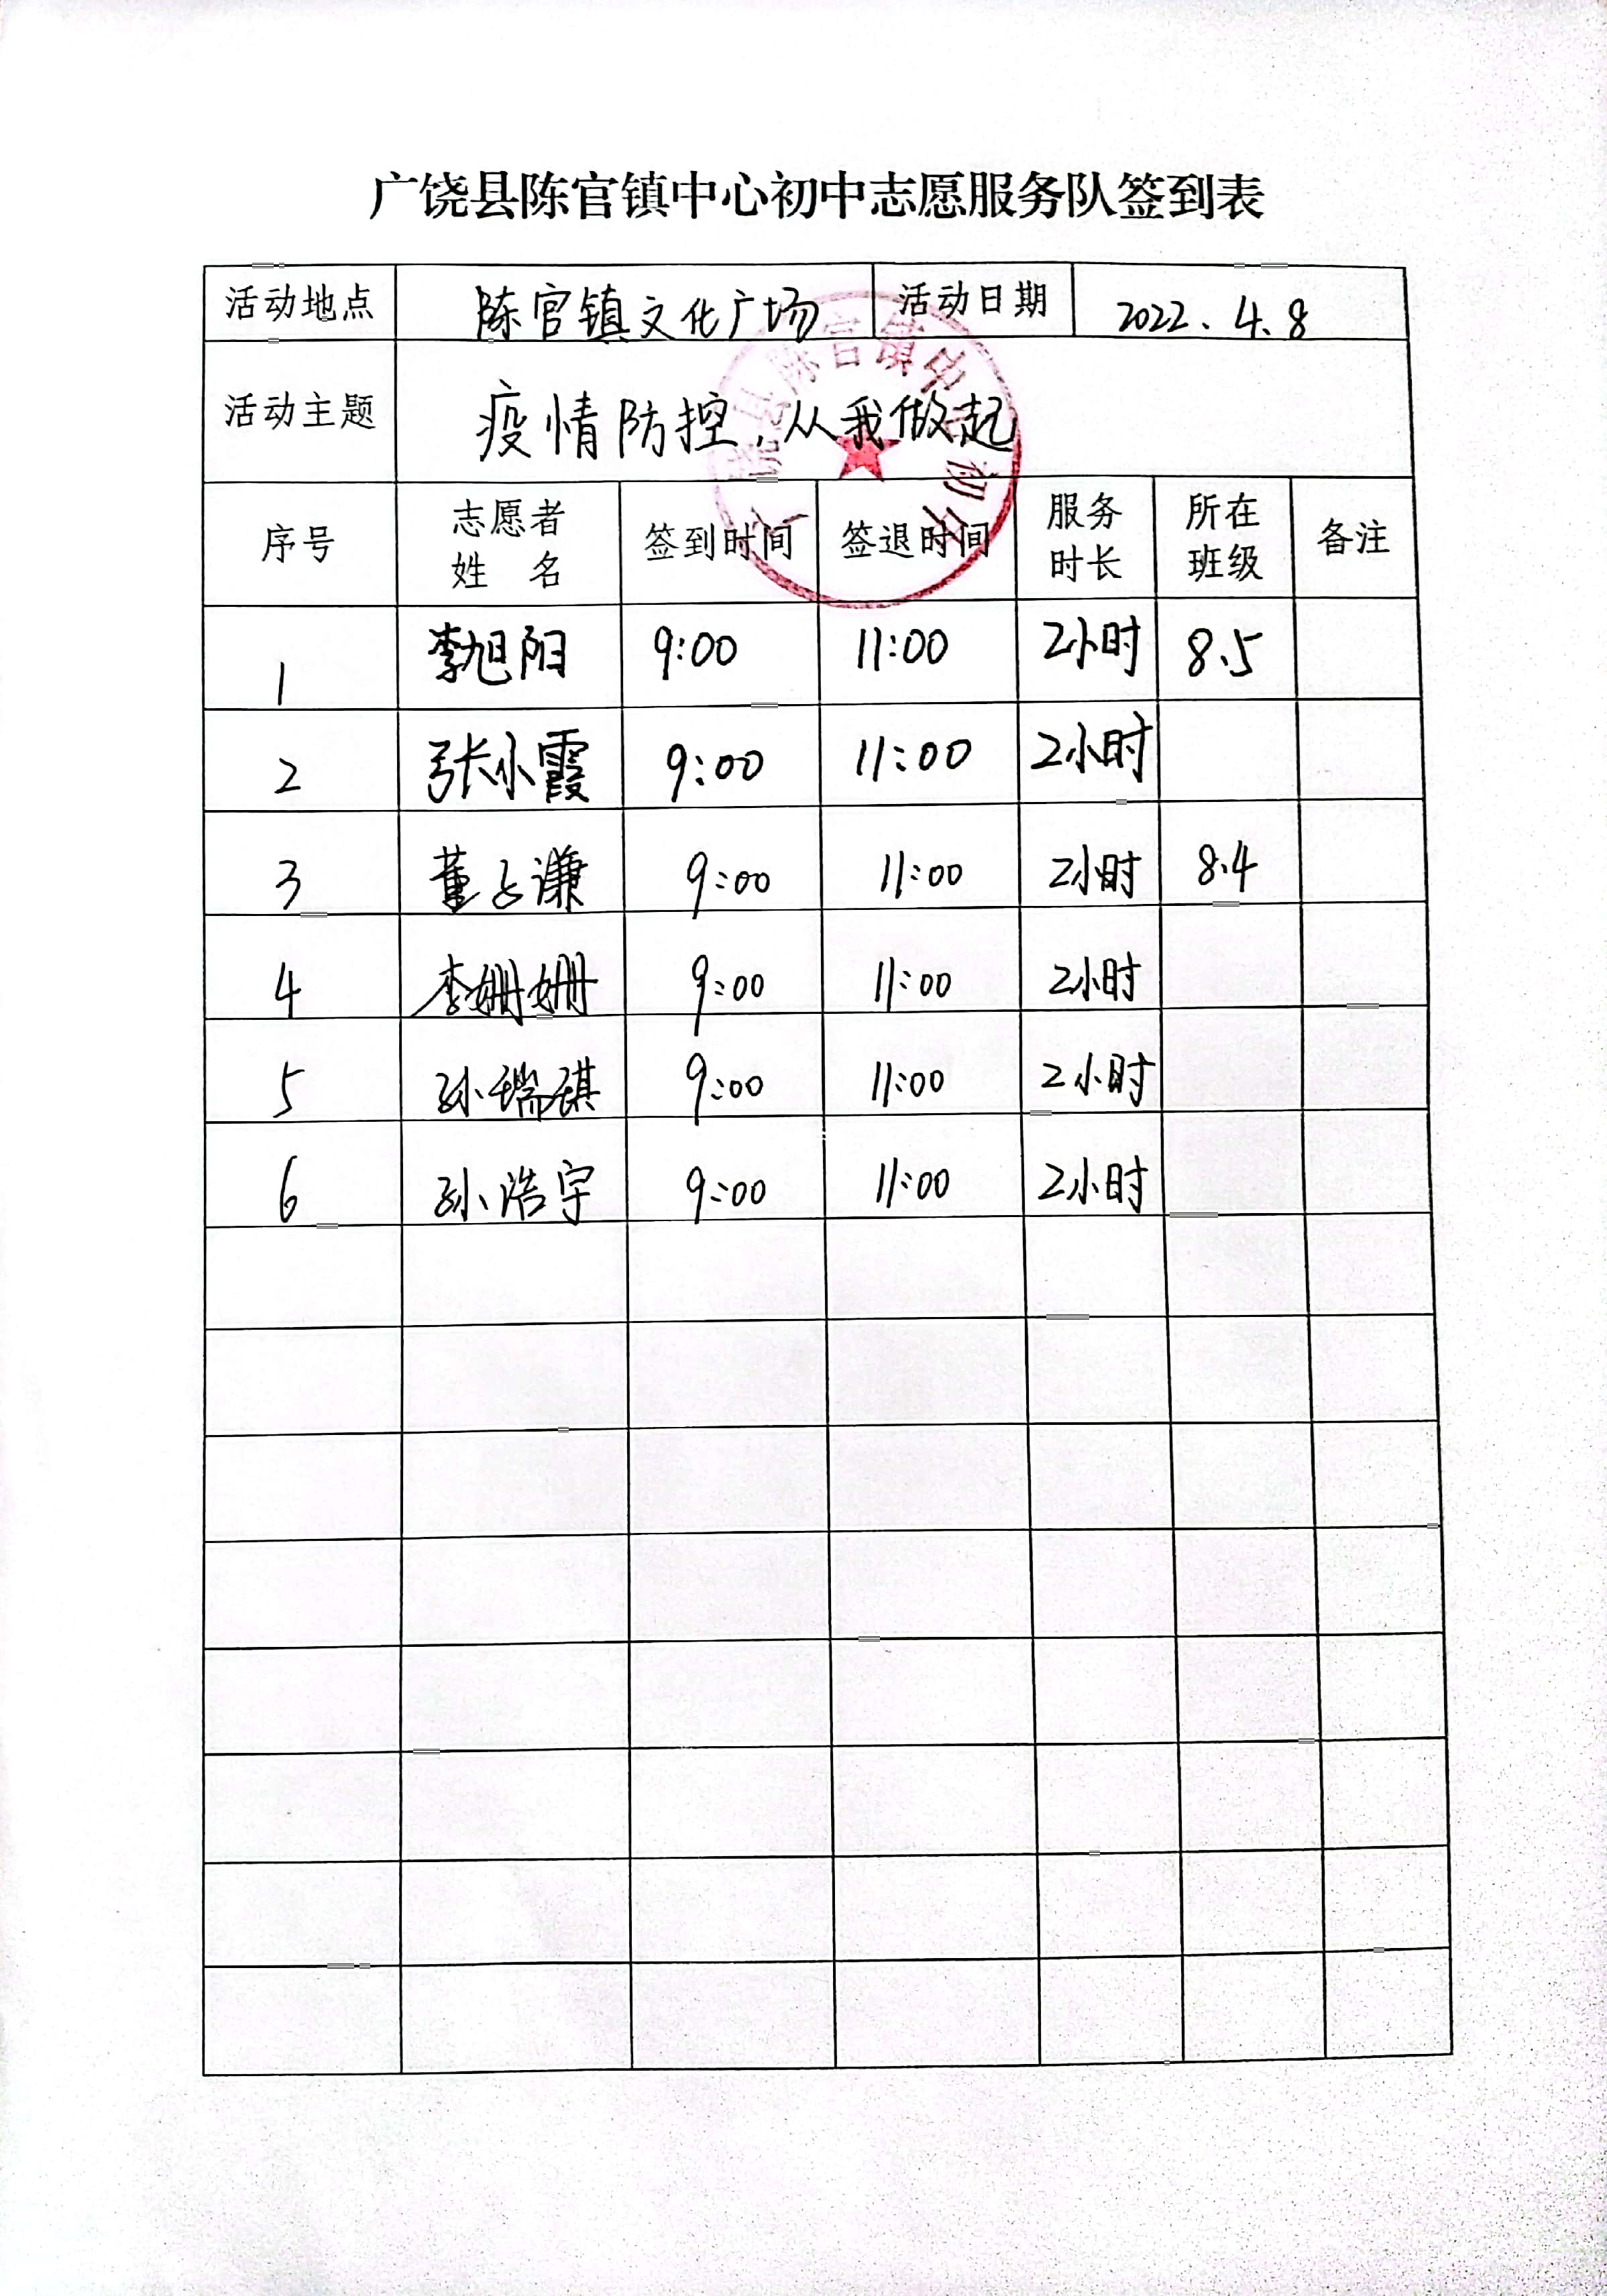 广饶县陈官镇中心初中志愿服务队签到表
活动地点 陈官镇文化广场 活动日期 2022.4.8
活动主题 疫情防控,从我做起
序号 志愿者姓名 签到时间 签退时间 服务时长 所在班级 备注
1 李旭阳 9:00 11:00 2小时 8.5
2 张小霞 9:00 11:00 2小时
3 董子谦 9:00 11:00 2小时 8.4
4 李姗姗 9:00 11:00 2小时
5 孙瑞琪 9:00 11:00 2小时
6 孙浩宇 9:00 11:00 2小时
广饶县陈官镇中心初中